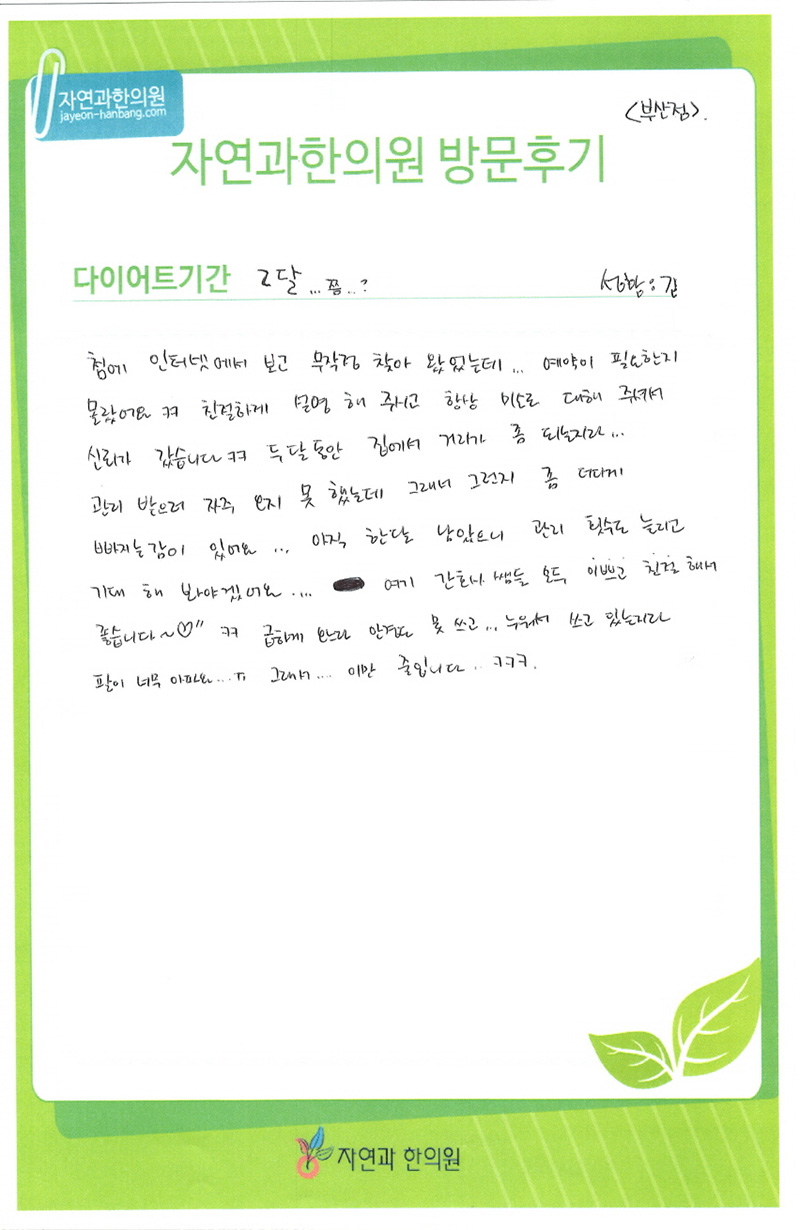 자연과한의원
jayeon-hanbang.com
<부산점>.
자연과한의원 방문후기
다이어트기간 2달...쯤...?
첨에 인터넷에서 보고 무작정 찾아 왔었는데... 예약이 필요한지
몰랐어요 ㅋㅋ 친절하게 설명 해 주시고 항상 미소로 대해 주셔서
신뢰가 갔습니다 ㅋㅋ 두달동안 집에서 거리가 좀 되는지라...
관리 받으러 자주 오지 못 했는데 그래서 그런지 좀 더디게
빠지는감이 있어요... 아직 한달 남았으니 관리 횟수도 늘리고
기대 해 봐야겠어요.... 여기 간호사 쌤들 모두 이쁘고 친절 해서
좋습니다~♡" ㅋㅋ 급하게 오느라 안경도 못 쓰고... 누워서 쓰고 있는지라
팔이 너무 아파요...ㅠ 그래서.... 이만 줄입니다.. ㅋㅋㅋ.
자연과 한의원